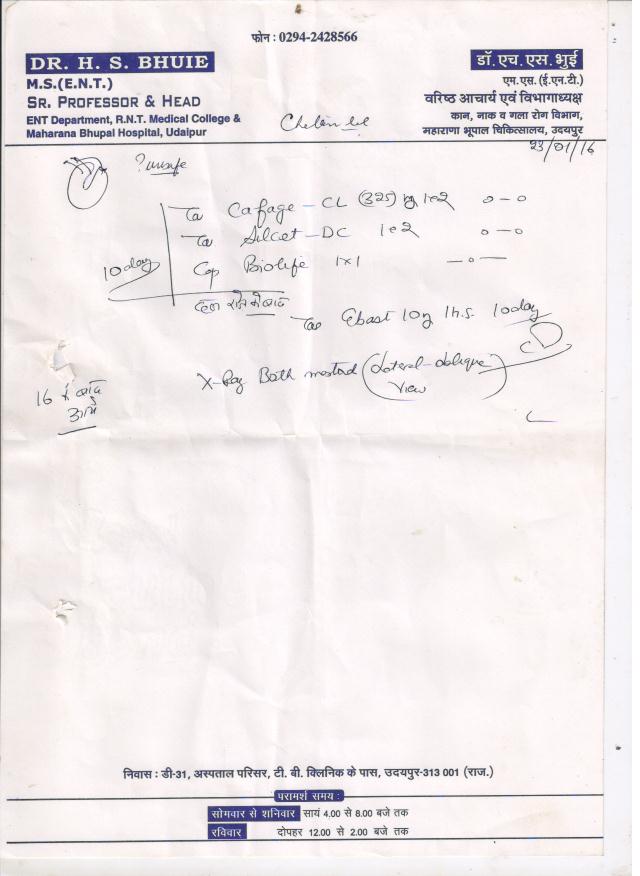 फोन : 0294-2428566
DR. H. S. BHUIE
M.S.(E.N.T.)
SR. PROFESSOR & HEAD
ENT Department, R.N.T. Medical College &
Maharana Bhupal Hospital, Udaipur
डॉ.एच.एस.भुई
एम.एस. (ई.एन.टी.)
वरिष्ठ आचार्य एवं विभागाध्यक्ष
कान, नाक व गला रोग विभाग,
महाराणा भूपाल चिकित्सालय, उदयपुर
23/01/16
CL (325) 1x2 0-0
DC 1x2 0-0
10 day
Cap Biolife 1x1 -0-
Ebast 10mg 1 h.s. 10day
X-Ray Both mastoid (Lateral-oblique
View)
16 के बाद
निवास : डी-31, अस्पताल परिसर, टी. बी. क्लिनिक के पास, उदयपुर-313 001 (राज.)
परामर्श समय :
सोमवार से शनिवार सायं 4.00 से 8.00 बजे तक
रविवार दोपहर 12.00 से 2.00 बजे तक